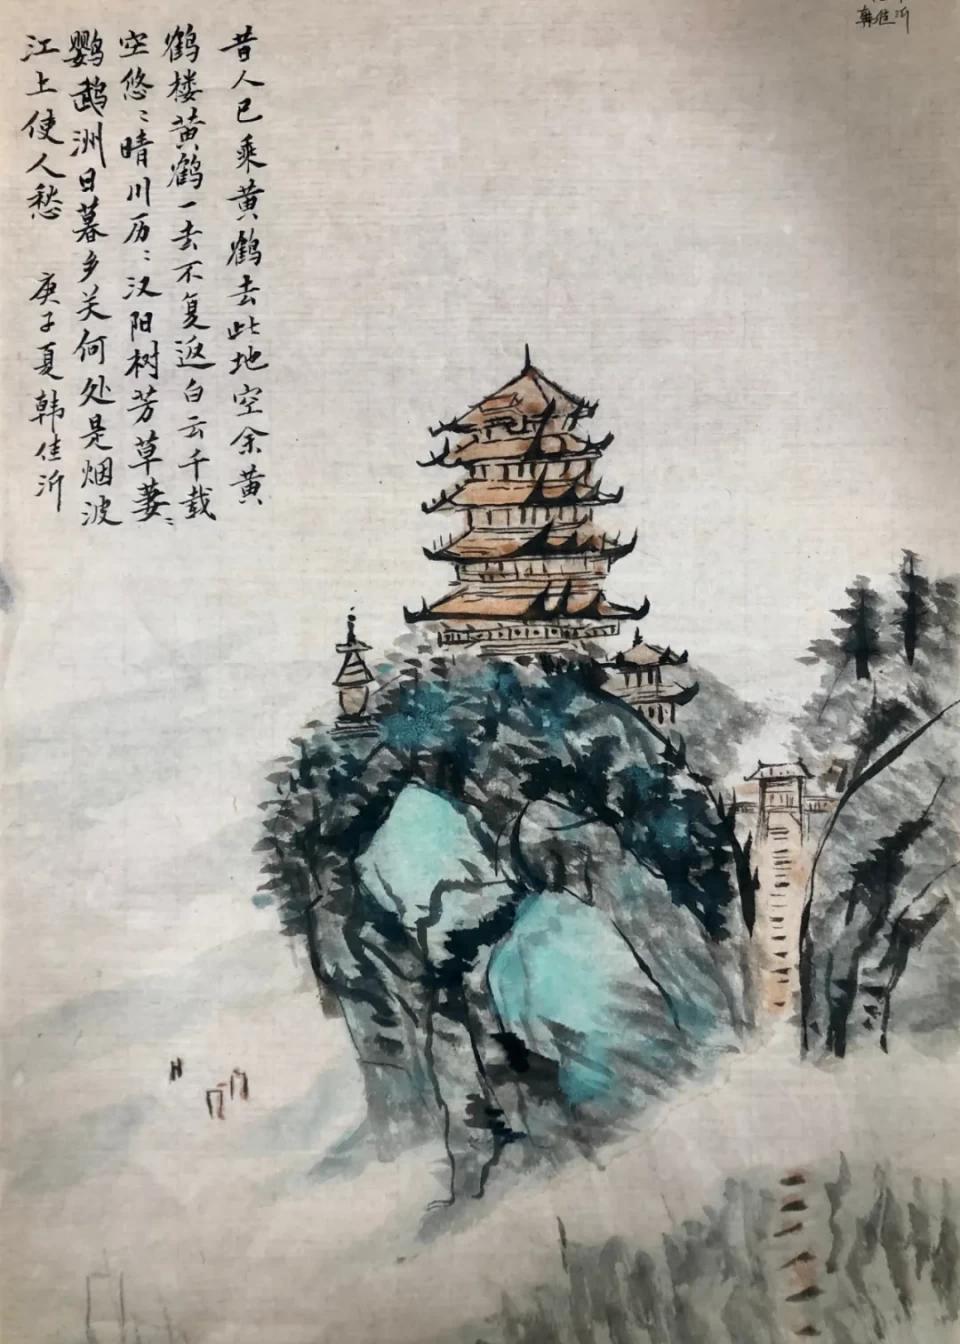 昔人已乘黄鹤去此地空余黄
鹤楼黄鹤一去不复返白云千载
空悠〻晴川历〻汉阳树芳草萋〻
鹦鹉洲日暮乡关何处是烟波
江上使人愁 庚子夏韩佳沂
韩佳沂